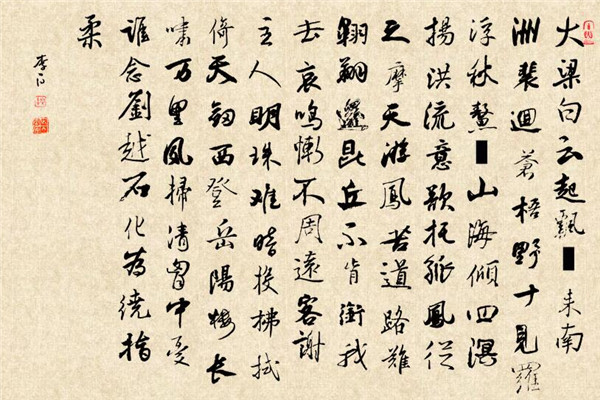 大梁白云起飄■来南
洲裴迴蒼梧野十見羅
浮秋鰲■山海傾四溟
揚洪流意欲托孤鳳從
之摩天游鳳苦道路難
翱翔還昆丘不肯銜我
去哀鳴慚不周遠客謝
主人明珠难暗投拂拭
倚天劍西登岳陽樓長
嘯万里風掃清胸中憂
誰念劉越石化为繞指
柔
李白